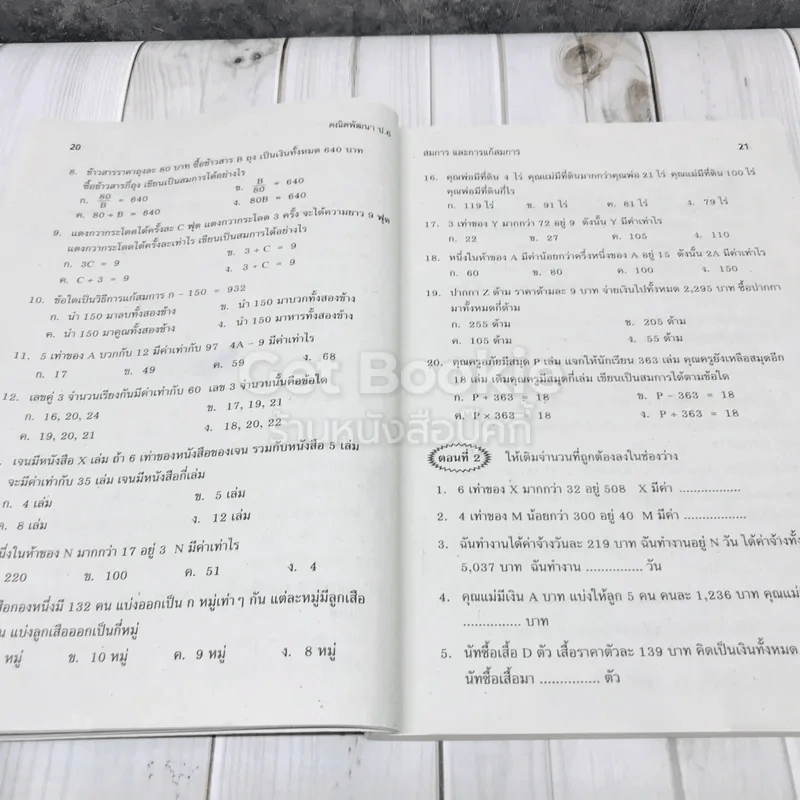 20
คณิตพัฒนา ป.6
8. ข้าวสารราคาถุงละ 80 บาท ซื้อข้าวสาร B ถุง เป็นเงินทั้งหมด 640 บาท
ซื้อข้าวสารกี่ถุง เขียนเป็นสมการได้อย่างไร
ก. 80/B = 640 ข. B/80 = 640
ค. 80 + B = 640 ง. 80B = 640
9. แตงกวากระโดดได้ครั้งละ C ฟุต แตงกวากระโดด 3 ครั้ง จะได้ความยาว 9 ฟุต
แตงกวากระโดดได้ครั้งละเท่าไร เขียนเป็นสมการได้อย่างไร
ก. 3C = 9 ข. 3 ÷ C = 9
ค. C ÷ 3 = 9 ง. 3 + C = 9
10. ข้อใดเป็นวิธีการแก้สมการ ก - 150 = 932
ก. นำ 150 มาลบทั้งสองข้าง ข. นำ 150 มาบวกทั้งสองข้าง
ค. นำ 150 มาคูณทั้งสองข้าง ง. นำ 150 มาหารทั้งสองข้าง
11. 5 เท่าของ A บวกกับ 12 มีค่าเท่ากับ 97 4A - 9 มีค่าเท่าไร
ก. 17 ข. 49 ค. 59 ง. 68
12. เลขคู่ 3 จำนวนเรียงกันมีค่าเท่ากับ 60 เลข 3 จำนวนนั้นคือข้อใด
ก. 16, 20, 24 ข. 17, 19, 21
ค. 19, 20, 21 ง. 18, 20, 22
เจนมีหนังสือ X เล่ม ถ้า 6 เท่าของหนังสือของเจน รวมกับหนังสือ 5 เล่ม
จะมีค่าเท่ากับ 35 เล่ม เจนมีหนังสือกี่เล่ม
ก. 4 เล่ม ข. 5 เล่ม
ค. 8 เล่ม ง. 12 เล่ม
นึ่งในห้าของ N มากกว่า 17 อยู่ 3 N มีค่าเท่าไร
220 ข. 100 ค. 51 ง. 4
สือกองหนึ่งมี 132 คน แบ่งออกเป็น ก หมู่เท่าๆ กัน แต่ละหมู่มีลูกเสือ
น แบ่งลูกเสือออกเป็นกี่หมู่
หมู่ ข. 10 หมู่ ค. 9 หมู่ ง. 8 หมู่
สมการ และการแก้สมการ
21
16. คุณพ่อมีที่ดิน 4 ไร่ คุณแม่มีที่ดินมากกว่าคุณพ่อ 21 ไร่ คุณแม่มีที่ดิน 100 ไร่
คุณพ่อมีที่ดินกี่ไร่
ก. 119 ไร่ ข. 91 ไร่ ค. 81 ไร่ ง. 79 ไร่
17. 3 เท่าของ Y มากกว่า 72 อยู่ 9 ดังนั้น Y มีค่าเท่าไร
ก. 22 ข. 27 ค. 105 ง. 110
18. หนึ่งในห้าของ A มีค่าน้อยกว่าครึ่งหนึ่งของ A อยู่ 15 ดังนั้น 2A มีค่าเท่าไร
ก. 60 ข. 80 ค. 100 ง. 150
19. ปากกา Z ด้าม ราคาด้ามละ 9 บาท จ่ายเงินไปทั้งหมด 2,295 บาท ซื้อปากกา
มาทั้งหมดกี่ด้าม
ก. 255 ด้าม ข. 205 ด้าม
ค. 105 ด้าม ง. 55 ด้าม
20. คุณครูอภัยมีสมุด P เล่ม แจกให้นักเรียน 363 เล่ม คุณครูยังเหลือสมุดอีก
18 เล่ม เดิมคุณครูมีสมุดกี่เล่ม เขียนเป็นสมการได้ตามข้อใด
ก. P + 363 = 18 ข. P - 363 = 18
ค. P × 363 = 18 ง. P ÷ 363 = 18
ตอนที่ 2 ให้เติมจำนวนที่ถูกต้องลงในช่องว่าง
1. 6 เท่าของ X มากกว่า 32 อยู่ 508 X มีค่า ................
2. 4 เท่าของ M น้อยกว่า 300 อยู่ 40 M มีค่า ................
3. ฉันทำงานได้ค่าจ้างวันละ 219 บาท ฉันทำงานอยู่ N วัน ได้ค่าจ้างทั้ง
5,037 บาท ฉันทำงาน ............... วัน
4. คุณแม่มีเงิน A บาท แบ่งให้ลูก 5 คน คนละ 1,236 บาท คุณแม่
............... บาท
5. นัทซื้อเสื้อ D ตัว เสื้อราคาตัวละ 139 บาท คิดเป็นเงินทั้งหมด
นัทซื้อเสื้อมา ............... ตัว
Get Bookie
ร้านหนังสือบุคกี้